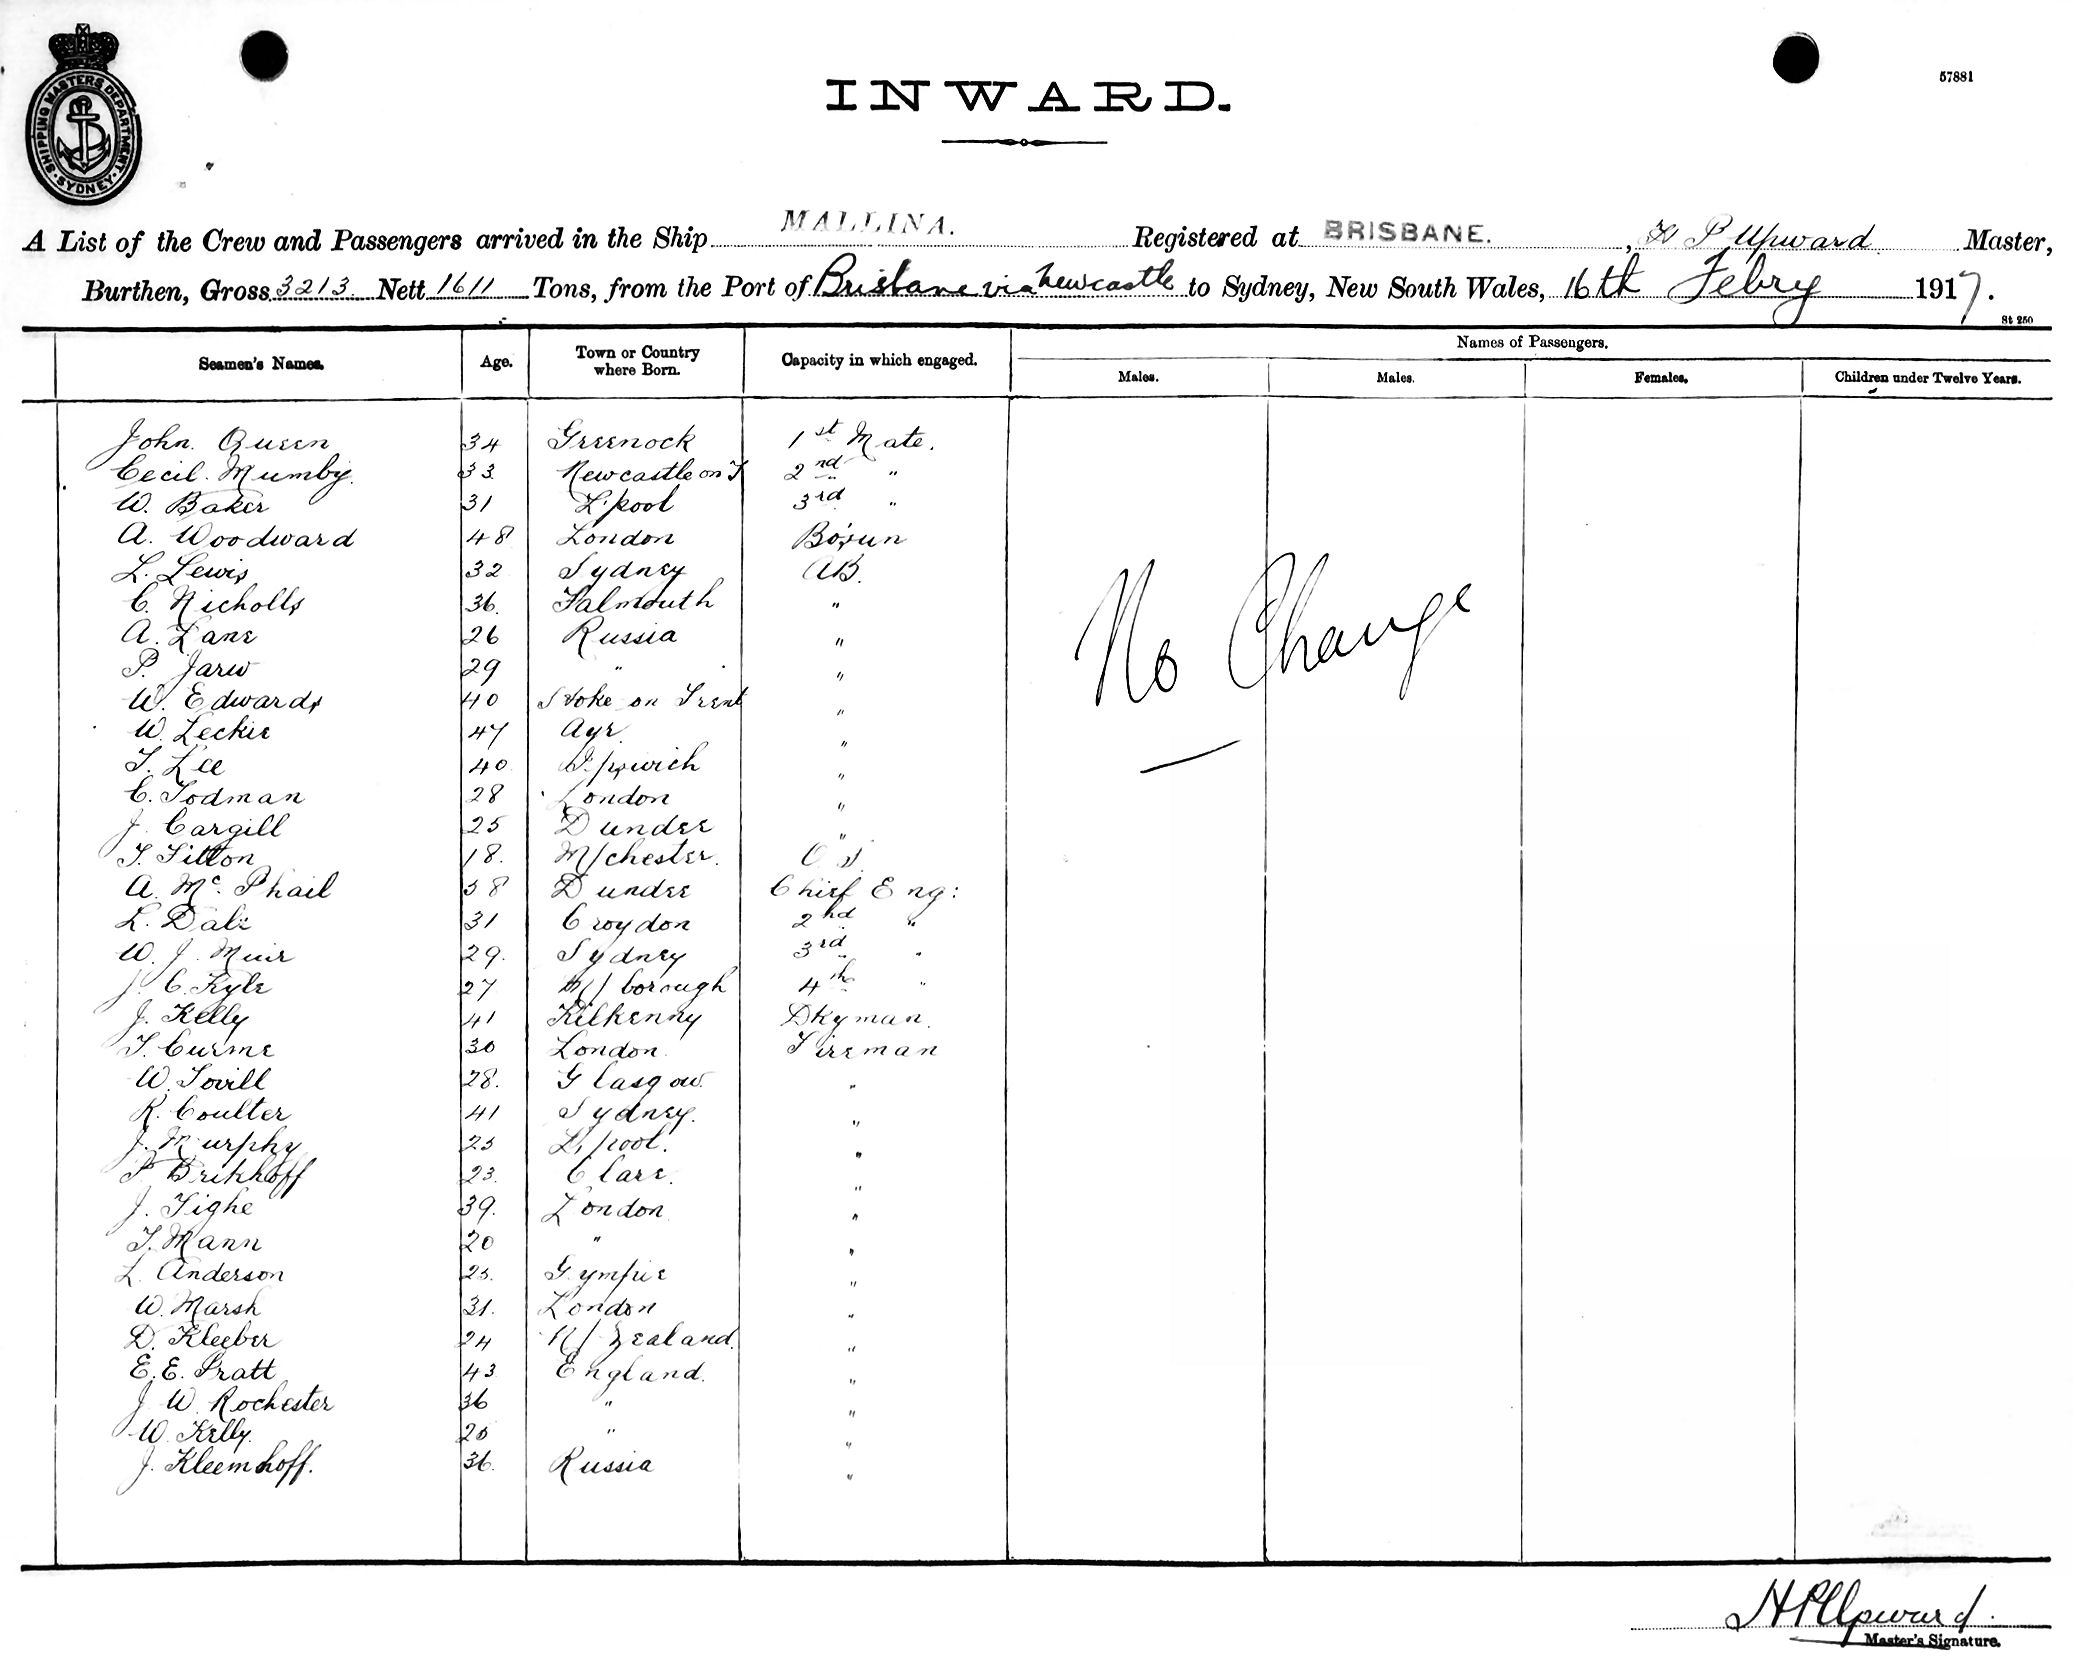 SHIPPING MASTERS DEPARTMENT. SYDNEY
57881
INWARD.
A List of the Crew and Passengers arrived in the Ship MALLINA. Registered at BRISBANE. , H P Upward Master,
Burthen, Gross 3213 Nett 1611 Tons, from the Port of Brisbane via Newcastle to Sydney, New South Wales, 16th Febry 1917.
St 250
Seamen's Names. Age. Town or Country where Born. Capacity in which engaged. Names of Passengers.
Males. Males. Females. Children under Twelve Years.
John. Queen 34 Greenock 1st Mate.
Cecil. Mumby. 33 Newcastle on T 2nd "
W. Baker 31 L'pool 3rd "
A. Woodward 48 London Bo'sun
L. Lewis 32 Sydney AB.
C. Nicholls 36. Falmouth "
A. Lane 26 Russia "
P. Jarw 29 " "
W. Edwards 40 Stoke on Trent "
W. Leckie 47 Ayr. "
T. Lee 40 Ipswich "
C. Todman 28 London "
J. Cargill 25 Dundee "
T. Fitton 18. M/chester. O.S.
A. Mc. Phail 38 Dundee Chief Eng:
L. Dale 31 Croydon 2nd "
W. J. Muir 29. Sydney 3rd "
J. C. Kyle 27 M/borough 4th "
J. Kelly 41 Kilkenny Dkyman.
T. Curme 30 London. Fireman
W. Tovill 28. Glasgow. "
R. Coulter 41 Sydney. "
J. Murphy 25 L'pool. "
P. Brikhoff 23. Clare. "
J. Tighe 39. London "
T. Mann 20 " "
L. Anderson 25. Gympie "
W. Marsh 31. London "
D. Kleeber 24 N/Zealand. "
E. E. Pratt 43 England. "
J. W. Rochester 36 " "
W. Kelly. 25 " "
J. Kleemhoff. 36. Russia "
No Change
H P Upward.
Master's Signature.